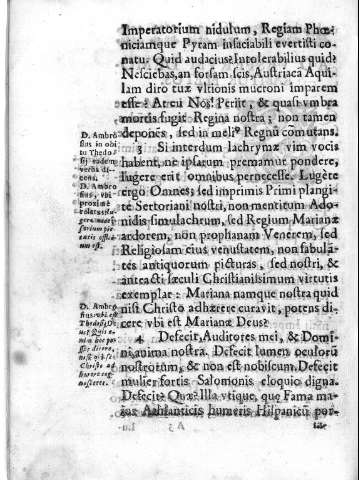 Imperatorium nidulum, Regiam Phœ-
niciamque Pyram insaciabili evertisti co-
natu. Quid audacius? Intolerabilius quid?
Nesciebas, an forsam scis, Austriaca Aqui-
lam diro tuæ vltionis mucroni imparem
esse? At eu Nos! Perijt, & quasi vmbra
mortis fugit Regina nostra; non tamen
deponēs, sed in meli⁹ Regnū comutans.
3 Si interdum lachrymæ vim vocis
habent, ne ipsarum premamur pondere,
lugère erit omnibus pernecesse. Lugète
ergo Omnes; sed imprimis Primi plangi-
te Sertoriani nostri, non mentitum Ado-
nidis simulachrum, sed Regium Marianæ
ardorem, non prophanam Venerem, sed
Religiosam eius venustatem, non fabulā-
tes antiquorum picturas, sed nostri, &
anteacti sæculi Christianissimum virtutis
exemplar: Mariana namque nostra quid
nisi Christo adhærere curavit, potens di-
cere vbi est Marianæ Deus?
4 Defecit, Auditores mei, & Domi-
ni, anima nostra. Defecit lumen oculorū
nostrorum, & non est nobiscum. Defecit
mulier fortis Salomonis eloquio digna.
Defecit? Quæ? Illa vtique, quę Fama ma-
ius Athlanticis humeris Hispanicū por-
A 3
D. Ambro
sius in obi
tu Thedo
sij eadem
verba di-
cens.
D. Ambro
sius, vbi
proximè
D. Ambro
sius. vbi est
Christo ad